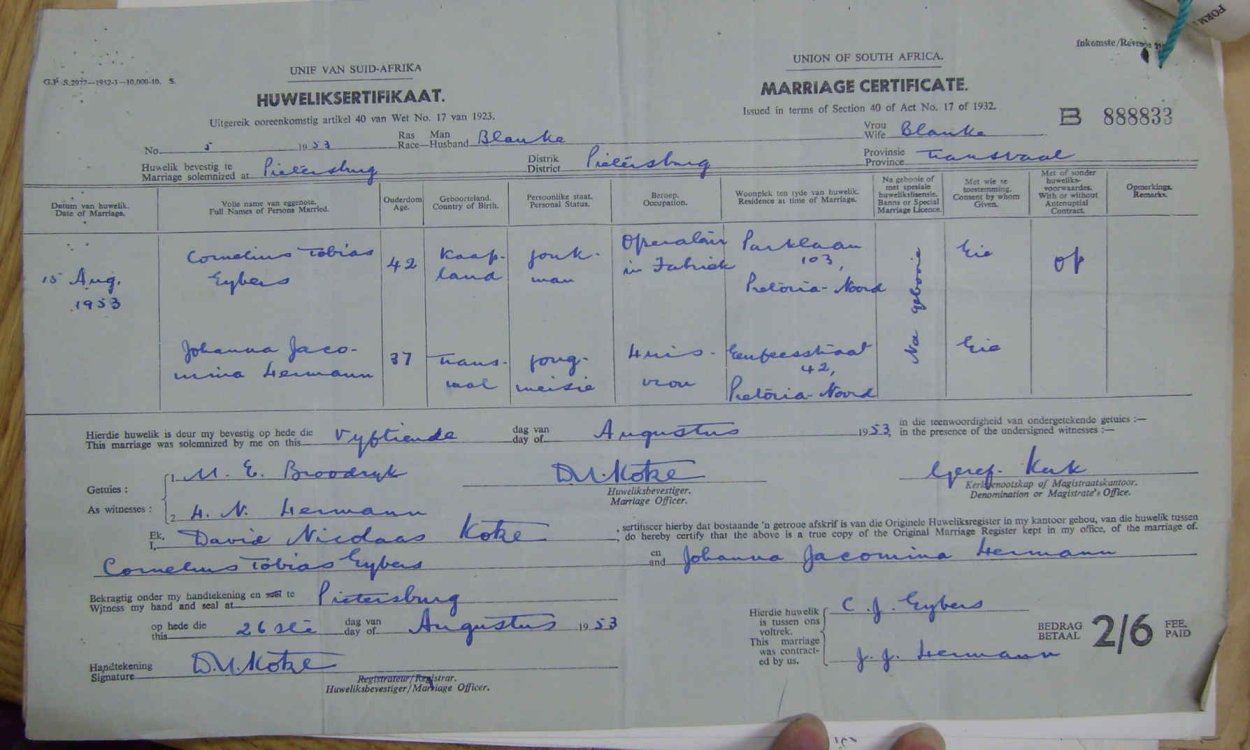 Inkomste/Revenue
G.P.-S.2977—1952-3—10,000-10. S.
UNIE VAN SUID-AFRIKA
HUWELIKSERTIFIKAAT.
Uitgereik ooreenkomstig artikel 40 van Wet No. 17 van 1923.
UNION OF SOUTH AFRICA.
MARRIAGE CERTIFICATE.
Issued in terms of Section 40 of Act No. 17 of 1932.
B 888833
No. 5 1953 Ras Man Blanke Vrou Blanke
Race—Husband Wife
Huwelik bevestig te Pietersburg Distrik Pietersburg Provinsie Transvaal
Marriage solemnized at District Province
Datum van huwelik. Date of Marriage.
Volle name van eggenote. Full Names of Persons Married.
Ouderdom Age.
Geboorteland. Country of Birth.
Persoonlike staat. Personal Status.
Beroep. Occupation.
Woonplek ten tyde van huwelik. Residence at time of Marriage.
Na gebooie of met spesiale huwelikslisensie. Banns or Special Marriage Licence.
Met wie se toestemming. Consent by whom Given.
Met of sonder huweliks-voorwaardes. With or without Antenuptial Contract.
Opmerkings. Remarks.
15 Aug. 1953
Cornelius Tobias Eybers
42
Kaap-land
jonk-man
Operateur in Fabriek
Parklaan 103, Pretoria-Noord
Na gebooie
Eie
op
Johanna Jaco-mina Hermann
37
Trans-vaal
jong-meisie
Huis-vrou
Eeufeesstraat 42, Pretoria-Noord
Eie
Hierdie huwelik is deur my bevestig op hede die Vyftiende dag van Augustus 1953, in die teenwoordigheid van ondergetekende getuies :—
This marriage was solemnized by me on this day of in the presence of the undersigned witnesses :—
Getuies :
As witnesses :
1 M. E. Broodryk
2 H. N. Hermann
D.N. Kotze
Huweliksbevestiger.
Marriage Officer.
Geref. Kerk
Kerkgenootskap of Magistraatskantoor.
Denomination or Magistrate's Office.
Ek, David Nicolaas Kotze, sertifiseer hierby dat bostaande 'n getroue afskrif is van die Originele Huweliksregister in my kantoor gehou, van die huwelik tussen
I, do hereby certify that the above is a true copy of the Original Marriage Register kept in my office, of the marriage of.
Cornelius Tobias Eybers en Johanna Jacomina Hermann
and
Bekragtig onder my handtekening en seël te Pietersburg
Witness my hand and seal at
op hede die 26ste dag van Augustus 1953
this day of
Handtekening D.N. Kotze
Signature
Registrateur/Registrar.
Huweliksbevestiger/Marriage Officer.
Hierdie huwelik is tussen ons voltrek.
This marriage was contracted by us.
C. J. Eybers
J. J. Hermann
BEDRAG BETAAL 2/6 FEE. PAID